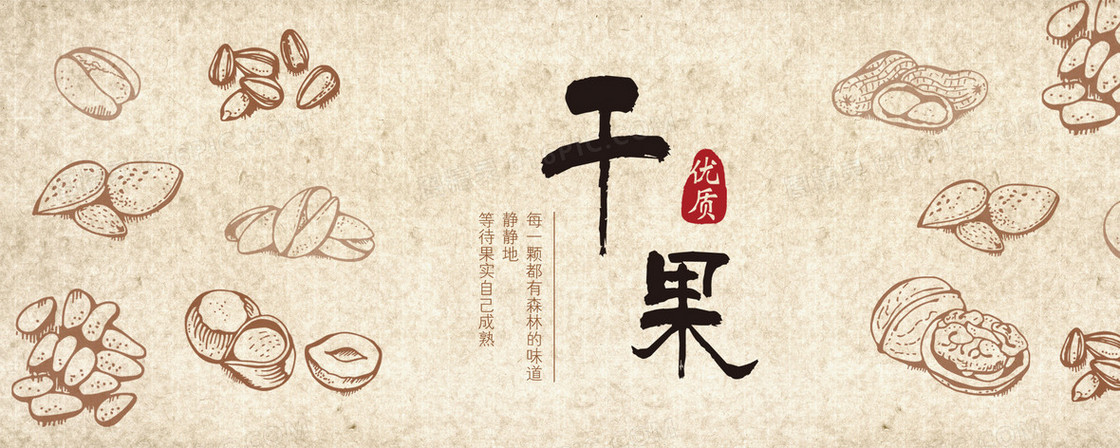 干果
优质
每一颗都有森林的味道
静静地
等待果实自己成熟